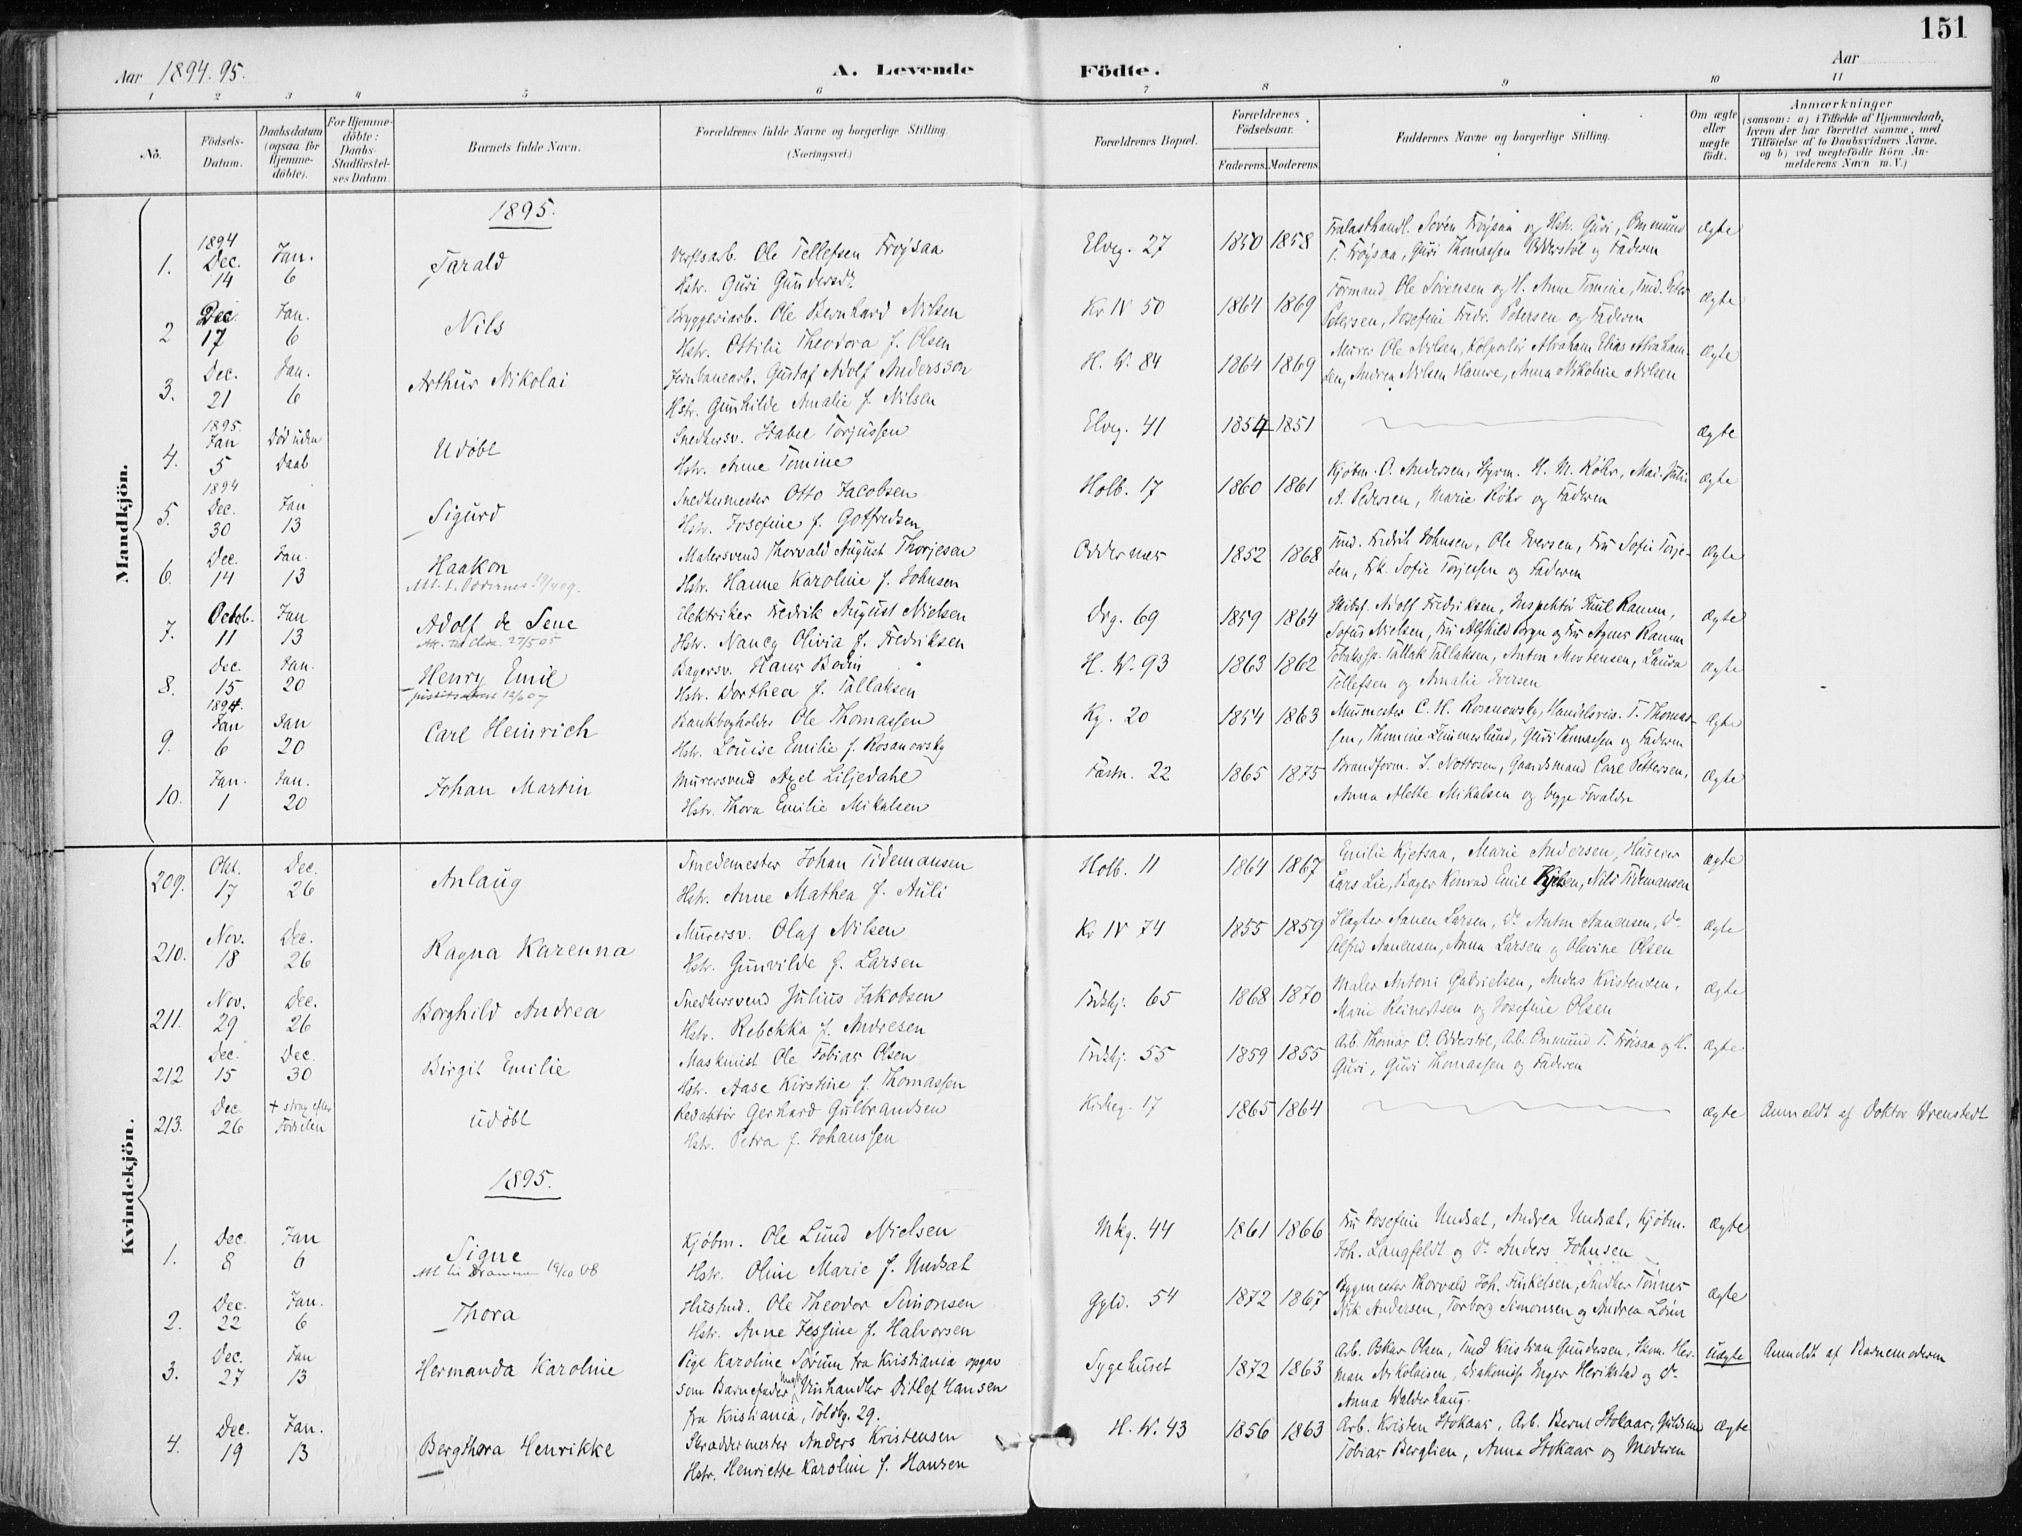 151
Aar 1894.95.
A. Levende Födte.
Aar
1 2 3 4 5 6 7 8 9 10 11
No.
Födsels-Datum.
Daabsdatum (ogsaa for Hjemme-döbte).
For Hjemme-döbte: Daabs-Stadfæstel-ses Datum.
Barnets fulde Navn.
Forældrenes fulde Navne og borgerlige Stilling. (Næringsvei.)
Forældrenes Bopæl.
Forældrenes Födselsaar.
Faderens. Moderens.
Faddernes Navne og borgerlige Stilling.
Om ægte eller uægte födt.
Anmærkninger (saasom: a) i Tilfælde af Hjemmedaab, hvem der har forrettet samme, med Tilföielse af to Daabsvidners Navne, og b) ved uægtefödte Börn An-melderens Navn m.V.)
Mandkjön.
1895.
1. 1894 Dec. 14 Jan. 6 Tarald Verftsarb. Ole Tellefsen Frøysaa Elveg. 27 1850 1858 Søren Frøysaa og Hstr. Guri, Ommund ægte
Hstr. Guri Gundersdt. T. Frøysaa, Guri Thomassen Odderstøl og Faderen
2 Dec. 17 Jan. 6 Nils Bryggeriarb. Ole Bernhard Nilsen Kv IV 50 1864 1869 Formand Ole Sørensen og H. Anne Tomine, Tmd. Peter ægte
Hstr. Ottilie Theodora f. Olsen Petersen, Josefine Fredr. Petersen og Faderen
3. Dec. 21 Jan. 6 Arthur Nikolai Jernbanearb. Gustaf Adolf Andersson H. W. 84 1864 1869 Murer Ole Nilsen, Kolportør Abraham Elias Abraham- ægte
Hstr. Gunhilde Amalie f. Nilsen sen, Andrea Nilsen Hamre, Anna Nikoline Nilsen
4. 1895. Jan 5 Død uden Daab Udøbt Snedkersv. Stabel Torjussen Elveg. 41 1854 1851 ægte
Hstr. Anne Tomine
5. 1894 Dec. 30 Jan 13 Sigurd Snedkermester Otto Jacobsen Holb. 17 1860 1861 Kjøbm. O. Andersen, Styrm. H. M. Røhr, ægte
Hstr. Josefine f. Gotfredsen A. Pedersen, Marie Røhr og Faderen
6. Dec. 14 Jan. 13 Haakon Malersvend Thorvald August Thorjesen Oddernes 1852 1868 Tmd. Fredrik Johnsen, Ole Iversen, Fru Sofie Torje- ægte
Hstr. Hanne Karoline f. Johnsen sen, Frk. Sofie Torjesen og Faderen
7. Octob. 11 Jan 13 Adolf de Sene Elektriker Fredrik August Nielsen Drg. 69 1859 1864 Skibsf. Adolf Fredriksen, Inspektør Emil Ramm, ægte
27/5 05 Hstr. Nancy Olivia f. Fredriksen Sofus Nielsen, Fru Alfhild Bryn og Fru Agnes Ramm
8. Dec. 15 Jan. 20 Henry Emil Bagersv. Hans Bodin H. W. 93 1863 1862 Tobaksp. Tallak Tallaksen, Anton Mortensen, Laura ægte
Hstr. Dorthea f. Tallaksen Tellefsen og Amalie Iversen
9. 1894. Jan 6 Jan 20 Carl Heinrich Bankbogholder Ole Thomassen Kg. 20 1854 1863 Murmester C. H. Rosanowsky, Handelsreis. T. Thomas- ægte
Hstr. Louise Emilie f. Rosanowsky sen, Thomine Zimmerlund, Guri Thomassen og Faderen
10. Jan. 1 Jan. 20 Johan Martin Murersvend Axel Liljedahl Fæstn. 22 1865 1875 Brandform. S. Nottosen, Gaardsmand Carl Pettersen, ægte
Hstr. Thora Emilie Mikalsen Anna Alette Mikalsen og begge Forældre
Kvindekjön.
209. Okt. 17 Dec. 26 Anlaug Smedemester Johan Tidemansen Holb. 11 1864 1867 Emilie Kjetsaa, Marie Andersen, Huseier ægte
Hstr. Anne Mathea f. Auli Lars Lie, Bager Konrad Emil Nils Tidemansen
210. Nov. 18 Dec. 26 Ragna Karenna Murersv. Olaf Nilsen Kv IV 74 1855 1859 Slagter Aanen Larsen, Do Anton Aanensen, Do ægte
Hstr. Gunvilde f. Larsen Alfred Aanensen, Anna Larsen og Olevine Olsen
211. Nov. 29 Dec. 26 Borghild Andrea Snedkersvend Julius Jakobsen Tordskj. 65 1868 1870 Maler Antoni Gabrielsen, Anders Kristensen, ægte
Hstr. Rebekka f. Andresen Marie Reinertsen og Josefine Olsen
212 Dec. 15 Dec. 30 Birgit Emilie Maskinist Ole Tobias Olsen Tordskj. 55 1859 1855 Arb. Thomas O. Odderstøl, Arb. Ommund T. Frøisaa og H. ægte
Hstr. Aase Kirstine f. Thomassen Guri, Guri Thomassen og Faderen
213. Dec. 26 + strax efter Fødselen udøbt Redaktør Gerhard Gulbrandsen Kirkeg. 17 1865 1864 ægte Anmeldt af Doktor
Hstr. Petra f. Johanssen
1895.
1. Dec. 8 Jan 6 Signe Kjøbm. Ole Lund Nielsen Mkg. 44 1861 1866 Fru Josefine Undsæt, Andrea Undsæt, Kjøbm. ægte
Att. til Drammen 19/10 08 Hstr. Oline Marie f. Undsæt Joh. Langfeldt og Do Anders Johnsen
2. Dec. 22 Jan. 6 Thora Ole Theodor Simonsen Gyld. 54 1872 1867 Bygmester Thorvald Joh. Terkelsen, Snedker Tønnes ægte
Hstr. Anne Jessine f. Halvorsen Nik. Andersen, Torborg Simonsen og Andrea
3. Dec. 27 Jan 13 Hermanda Karoline Pige Karoline Sørum fra Kristiania opgav Sygehuset 1872 1863 Arb. Oskar Olsen, Tmd Kristian Gundersen, Her- uægte Anmeldt af Barnemoderen
som Barnefader Ungk. Vinhandler Ditlef Hansen man Nikolaisen, Diakonisse Inger Herikstad og Do
fra Kristiania, Toldbg. 29. Anna Walderhaug.
4. Dec. 19 Jan. 13 Bergthora Henrikke Skræddermester Anders Kristensen H. W. 43 1856 1863 Arb. Kristen Stokaas, Arb. Bernt Stokaas, Guldsmed ægte
Hstr. Henriette Karoline f. Hansen Tobias Berglien, Anna Stokaas og Moderen